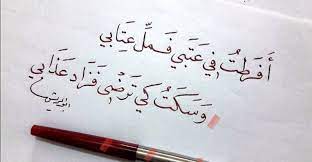 أَفرَطتُ في عَتَبي فَمِلِّ عِتَابي
وَسَكَتُ كَي تَرضَى فَزَادَ عَذَابي